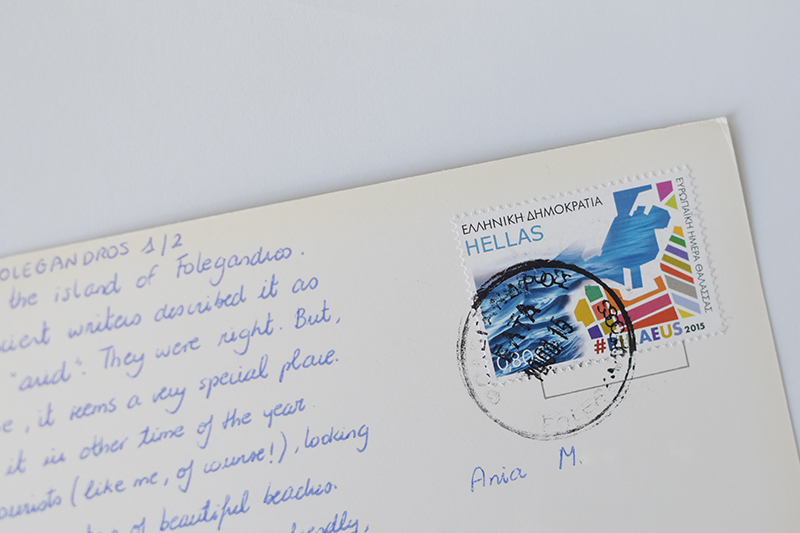 OLEGANDROS 1/2
the island of Folegandros.
cient writers described it as
"arid". They were right. But,
e, it seems a very special place.
it in other time of the year.
ourists (like me, of course!), looking
of beautiful beaches.
endly,
Ania M.
ΕΛΛΗΝΙΚΗ ΔΗΜΟΚΡΑΤΙΑ
HELLAS
ΕΥΡΩΠΑΪΚΗ ΗΜΕΡΑ ΘΑΛΑΣΣΑΣ
0,80€
2015